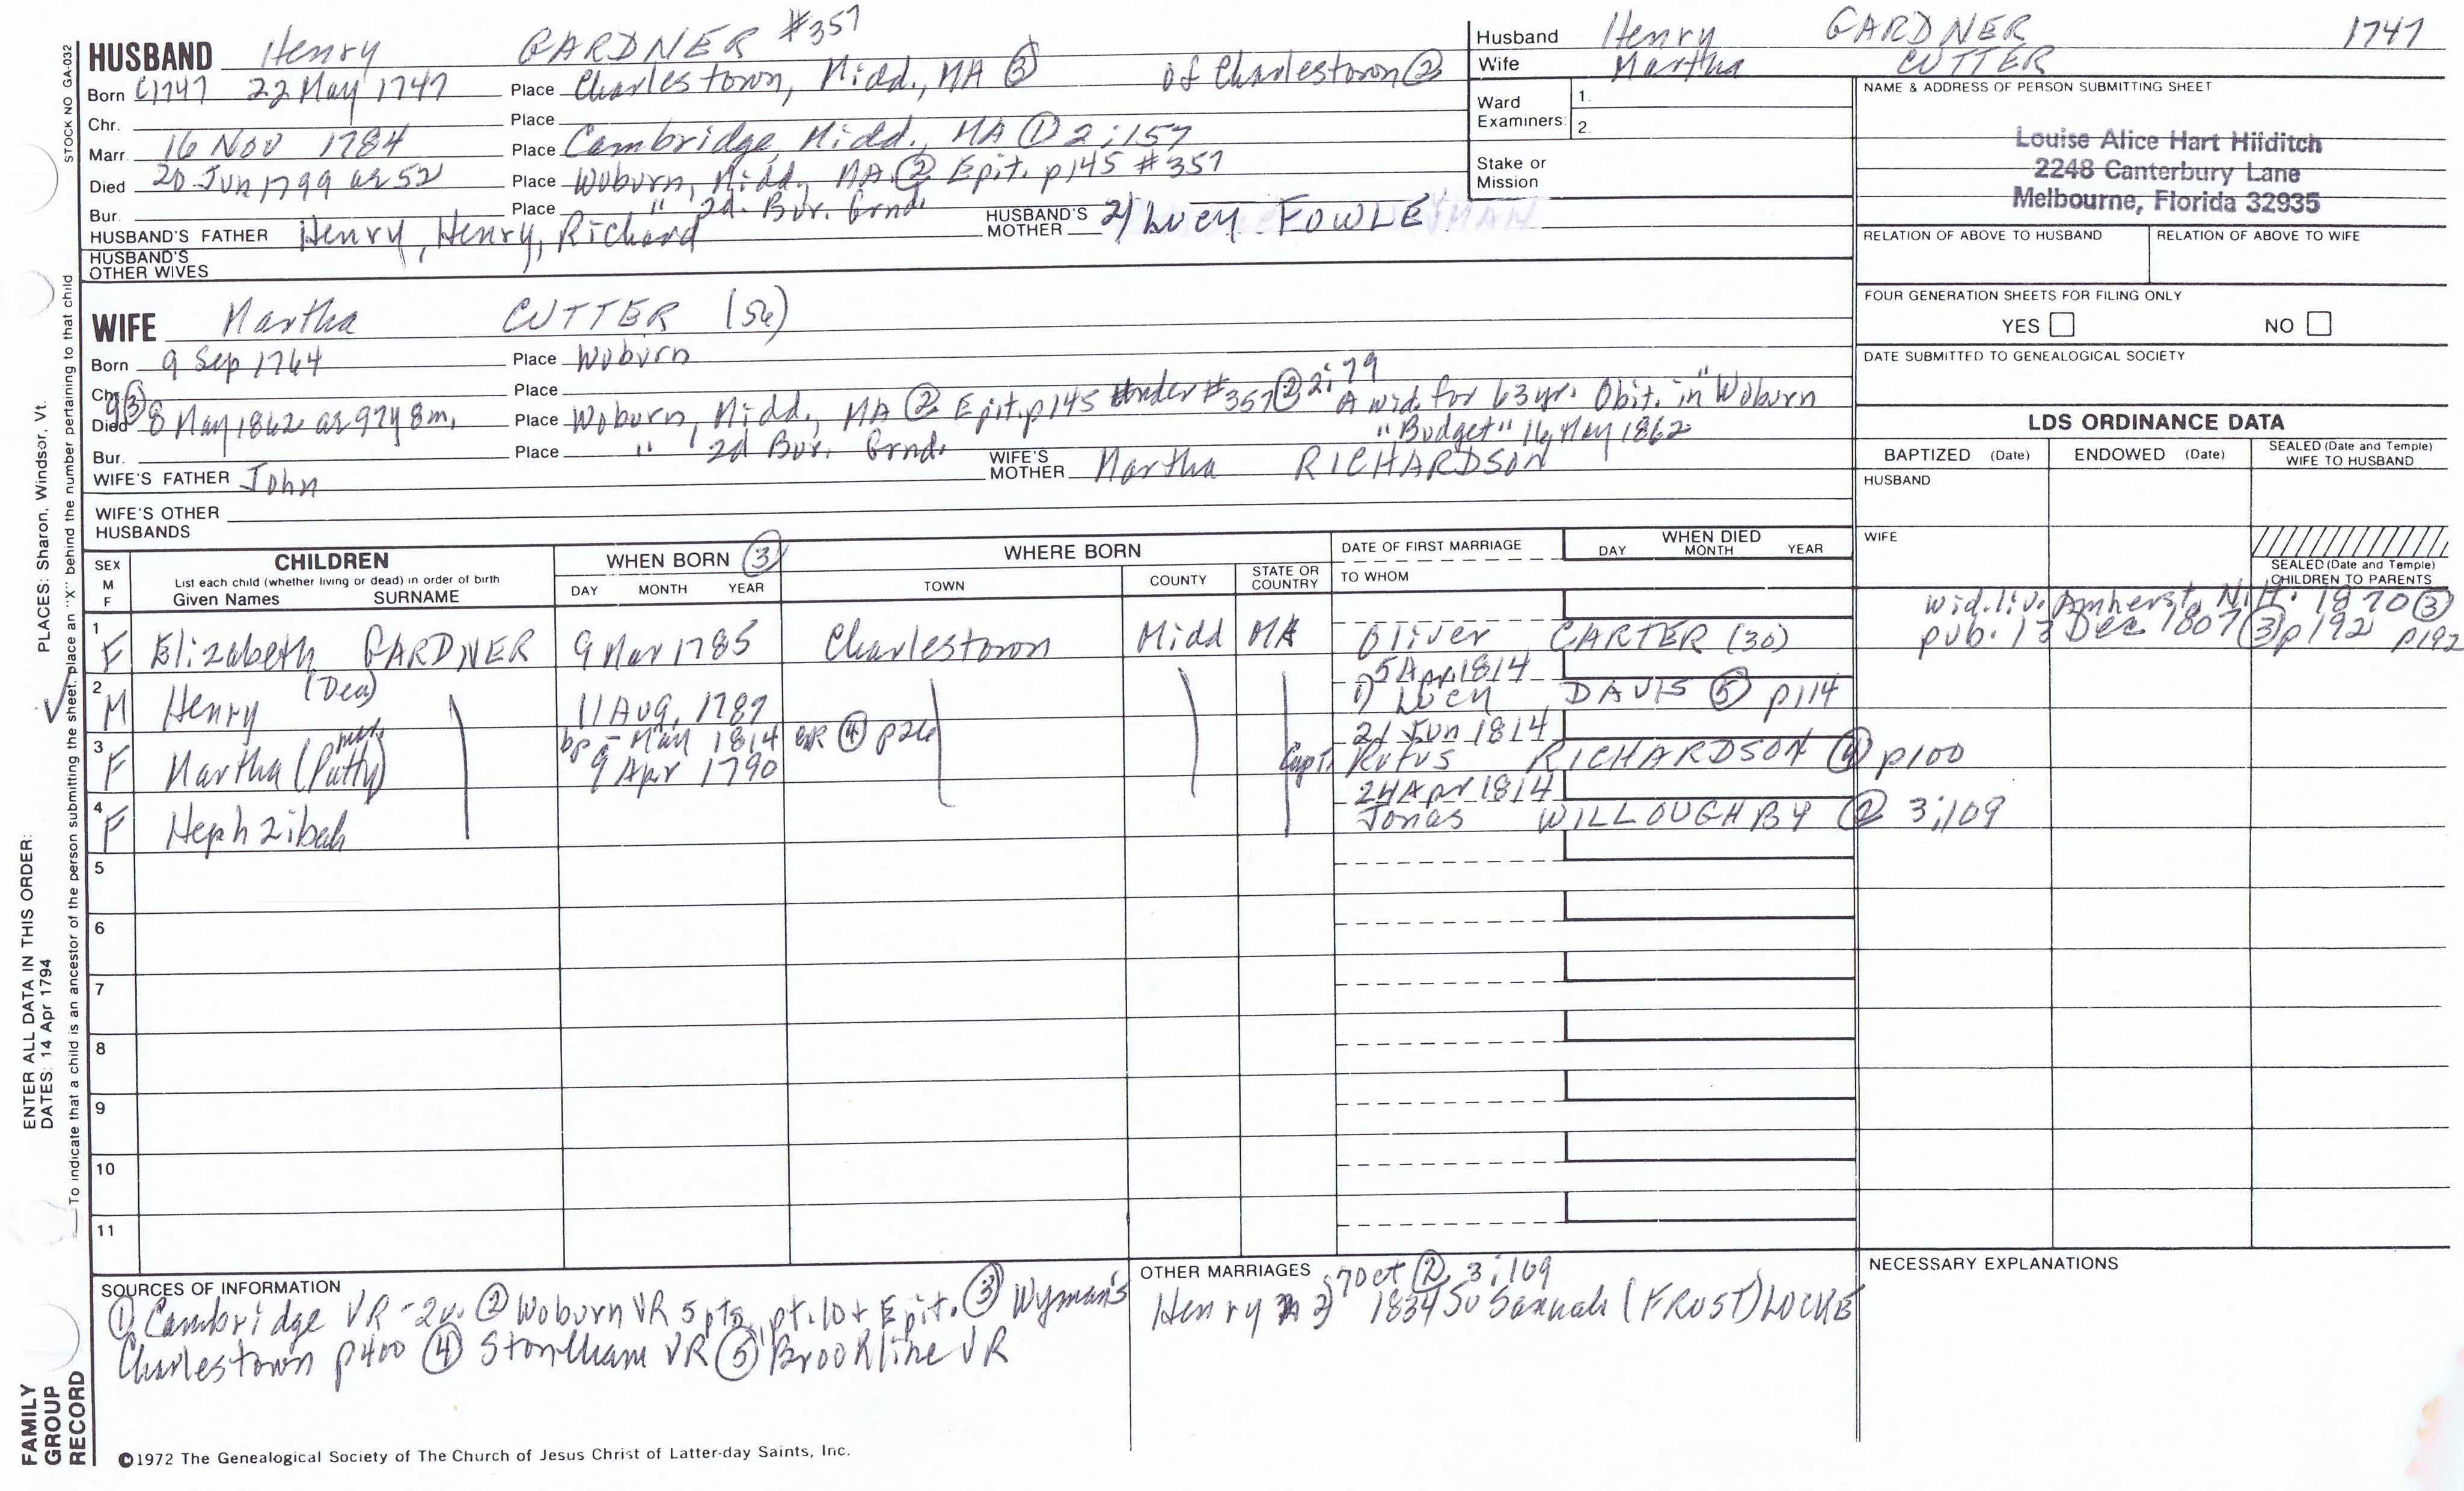 STOCK NO GA-032
HUSBAND Henry GARDNER #357
Born C1747 22 May 1747 Place Charlestown, Midd., MA ③ of Charlestown ②
Chr. Place
Marr. 16 Nov 1784 Place Cambridge, Midd., MA ① 2:157
Died 20 Jun 1799 ae 52 Place Woburn, Midd., MA ② Epit. p145 #357
Bur. Place " 2d. Bur. Grnd.
HUSBAND'S FATHER Henry, Henry, Richard HUSBAND'S MOTHER 2/ Lucy FOWLE
HUSBAND'S OTHER WIVES
Husband Henry GARDNER 1747
Wife Martha CUTTER
Ward Examiners: 1.
2.
Stake or Mission
NAME & ADDRESS OF PERSON SUBMITTING SHEET
Louise Alice Hart Hilditch
2248 Canterbury Lane
Melbourne, Florida 32935
RELATION OF ABOVE TO HUSBAND RELATION OF ABOVE TO WIFE
FOUR GENERATION SHEETS FOR FILING ONLY
YES NO
DATE SUBMITTED TO GENEALOGICAL SOCIETY
WIFE Martha CUTTER (56)
Born 9 Sep 1764 Place Woburn
Chr. Place
Died 9③ 8 May 1862 ae 97y 8m. Place Woburn, Midd., MA ② Epit. p145 under #357 ② 2:79 A wid. for 63 yr. Obit. in "Woburn
"Budget" 16 May 1862
Bur. Place " 2d Bur. Grnd.
WIFE'S FATHER John WIFE'S MOTHER Martha RICHARDSON
WIFE'S OTHER HUSBANDS
LDS ORDINANCE DATA
BAPTIZED (Date) ENDOWED (Date) SEALED (Date and Temple) WIFE TO HUSBAND
HUSBAND
WIFE
SEALED (Date and Temple) CHILDREN TO PARENTS
SEX M F
CHILDREN
List each child (whether living or dead) in order of birth
Given Names SURNAME
WHEN BORN ③
DAY MONTH YEAR
WHERE BORN
TOWN COUNTY STATE OR COUNTRY
DATE OF FIRST MARRIAGE
TO WHOM
WHEN DIED
DAY MONTH YEAR
wid. liv. Amherst, N.H. 1870 ③
1 F Elizabeth GARDNER 9 Mar 1785 Charlestown Midd MA Oliver CARTER (30) pub. 13 Dec 1807 ③ p192 p192
5 Apr 1814
2 M Henry (Dea) 11 Aug, 1787 1) Lucy DAVIS ⑤ p114
bp - May 1814 ④ p26 21 Jun 1814
3 F Martha (Patty) 9 Apr 1790 Capt. Rufus RICHARDSON ④ p100
24 Apr 1814
4 F Hephzibah Jonas WILLOUGHBY ② 3:109
5
6
7
8
9
10
11
SOURCES OF INFORMATION
① Cambridge VR - 2v. ② Woburn VR 5 pts, pt. 10 + Epit. ③ Wyman's
Charlestown p400 ④ Stoneham VR ⑤ Brookline VR
OTHER MARRIAGES 7 Oct ② 3:109
Henry m 2) 1834 Susannah (FROST) LOCKE
NECESSARY EXPLANATIONS
©1972 The Genealogical Society of The Church of Jesus Christ of Latter-day Saints, Inc.
FAMILY GROUP RECORD
ENTER ALL DATA IN THIS ORDER:
DATES: 14 Apr 1794 PLACES: Sharon, Windsor, Vt.
To indicate that a child is an ancestor of the person submitting the sheet, place an "X" behind the number pertaining to that child